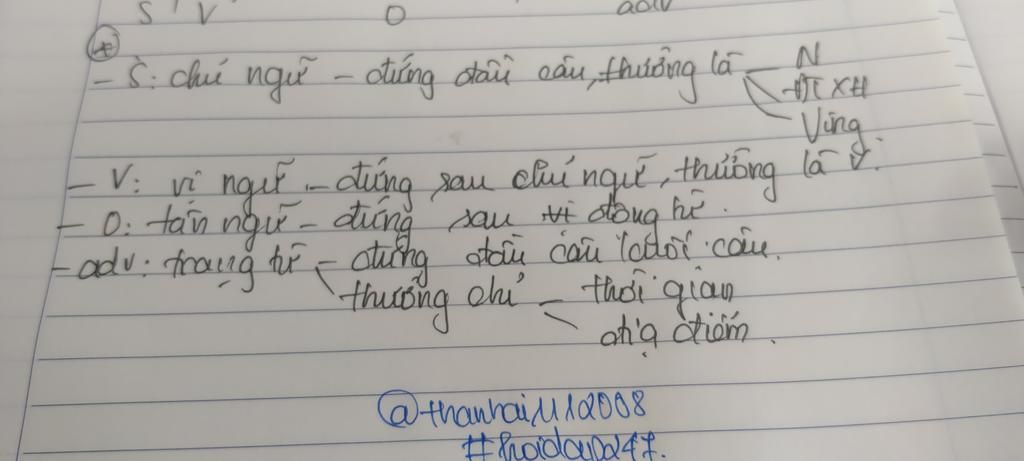 S V O adv
- S: chủ ngữ - đứng đầu câu, thường là - N
ĐTXH
Ving
- V: vị ngữ - đứng sau chủ ngữ, thường là V.
- O: tân ngữ - đứng sau động từ.
- adv: trạng từ - đứng đầu câu / cuối câu.
thường chỉ - thời gian
địa điểm.
@thanhai11112008